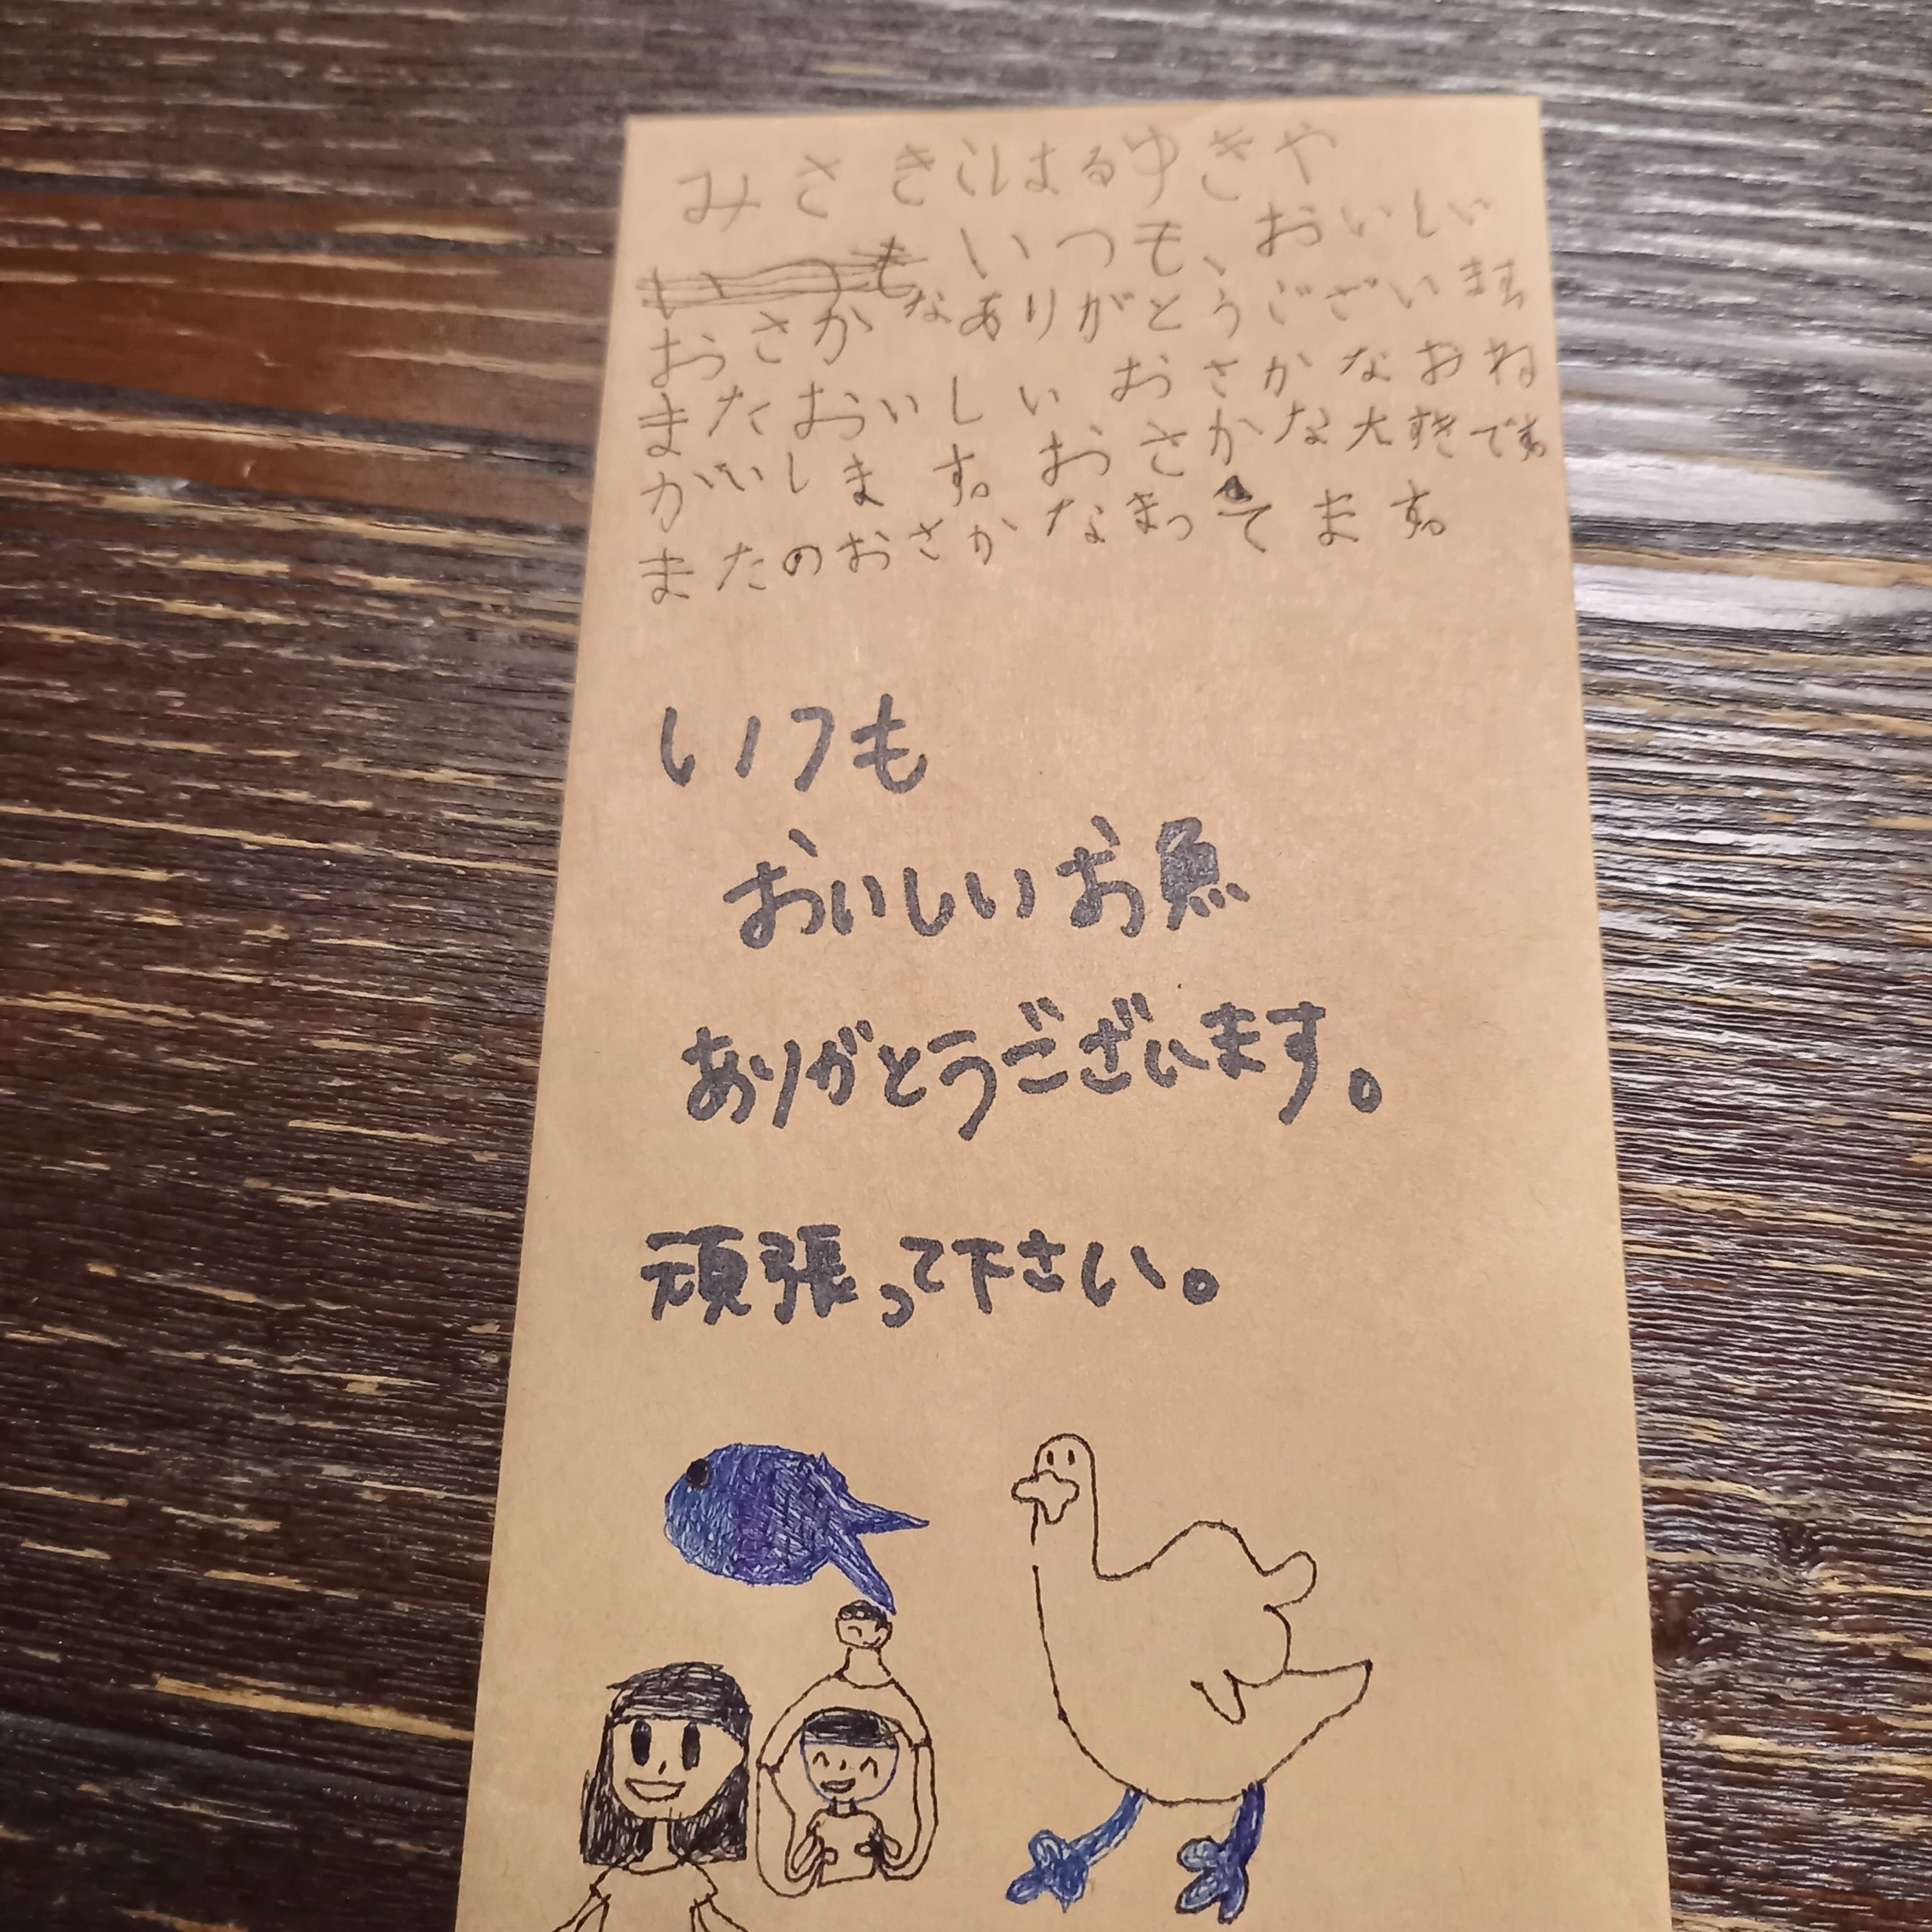 みさき はるゆきや
いつも いつも、おいしい
おさかなありがとうございます
またおいしいおさかなおね
がいします。おさかな大すきです。
またのおさかなまってます。
いつも
おいしいお魚
ありがとうございます。
頑張って下さい。